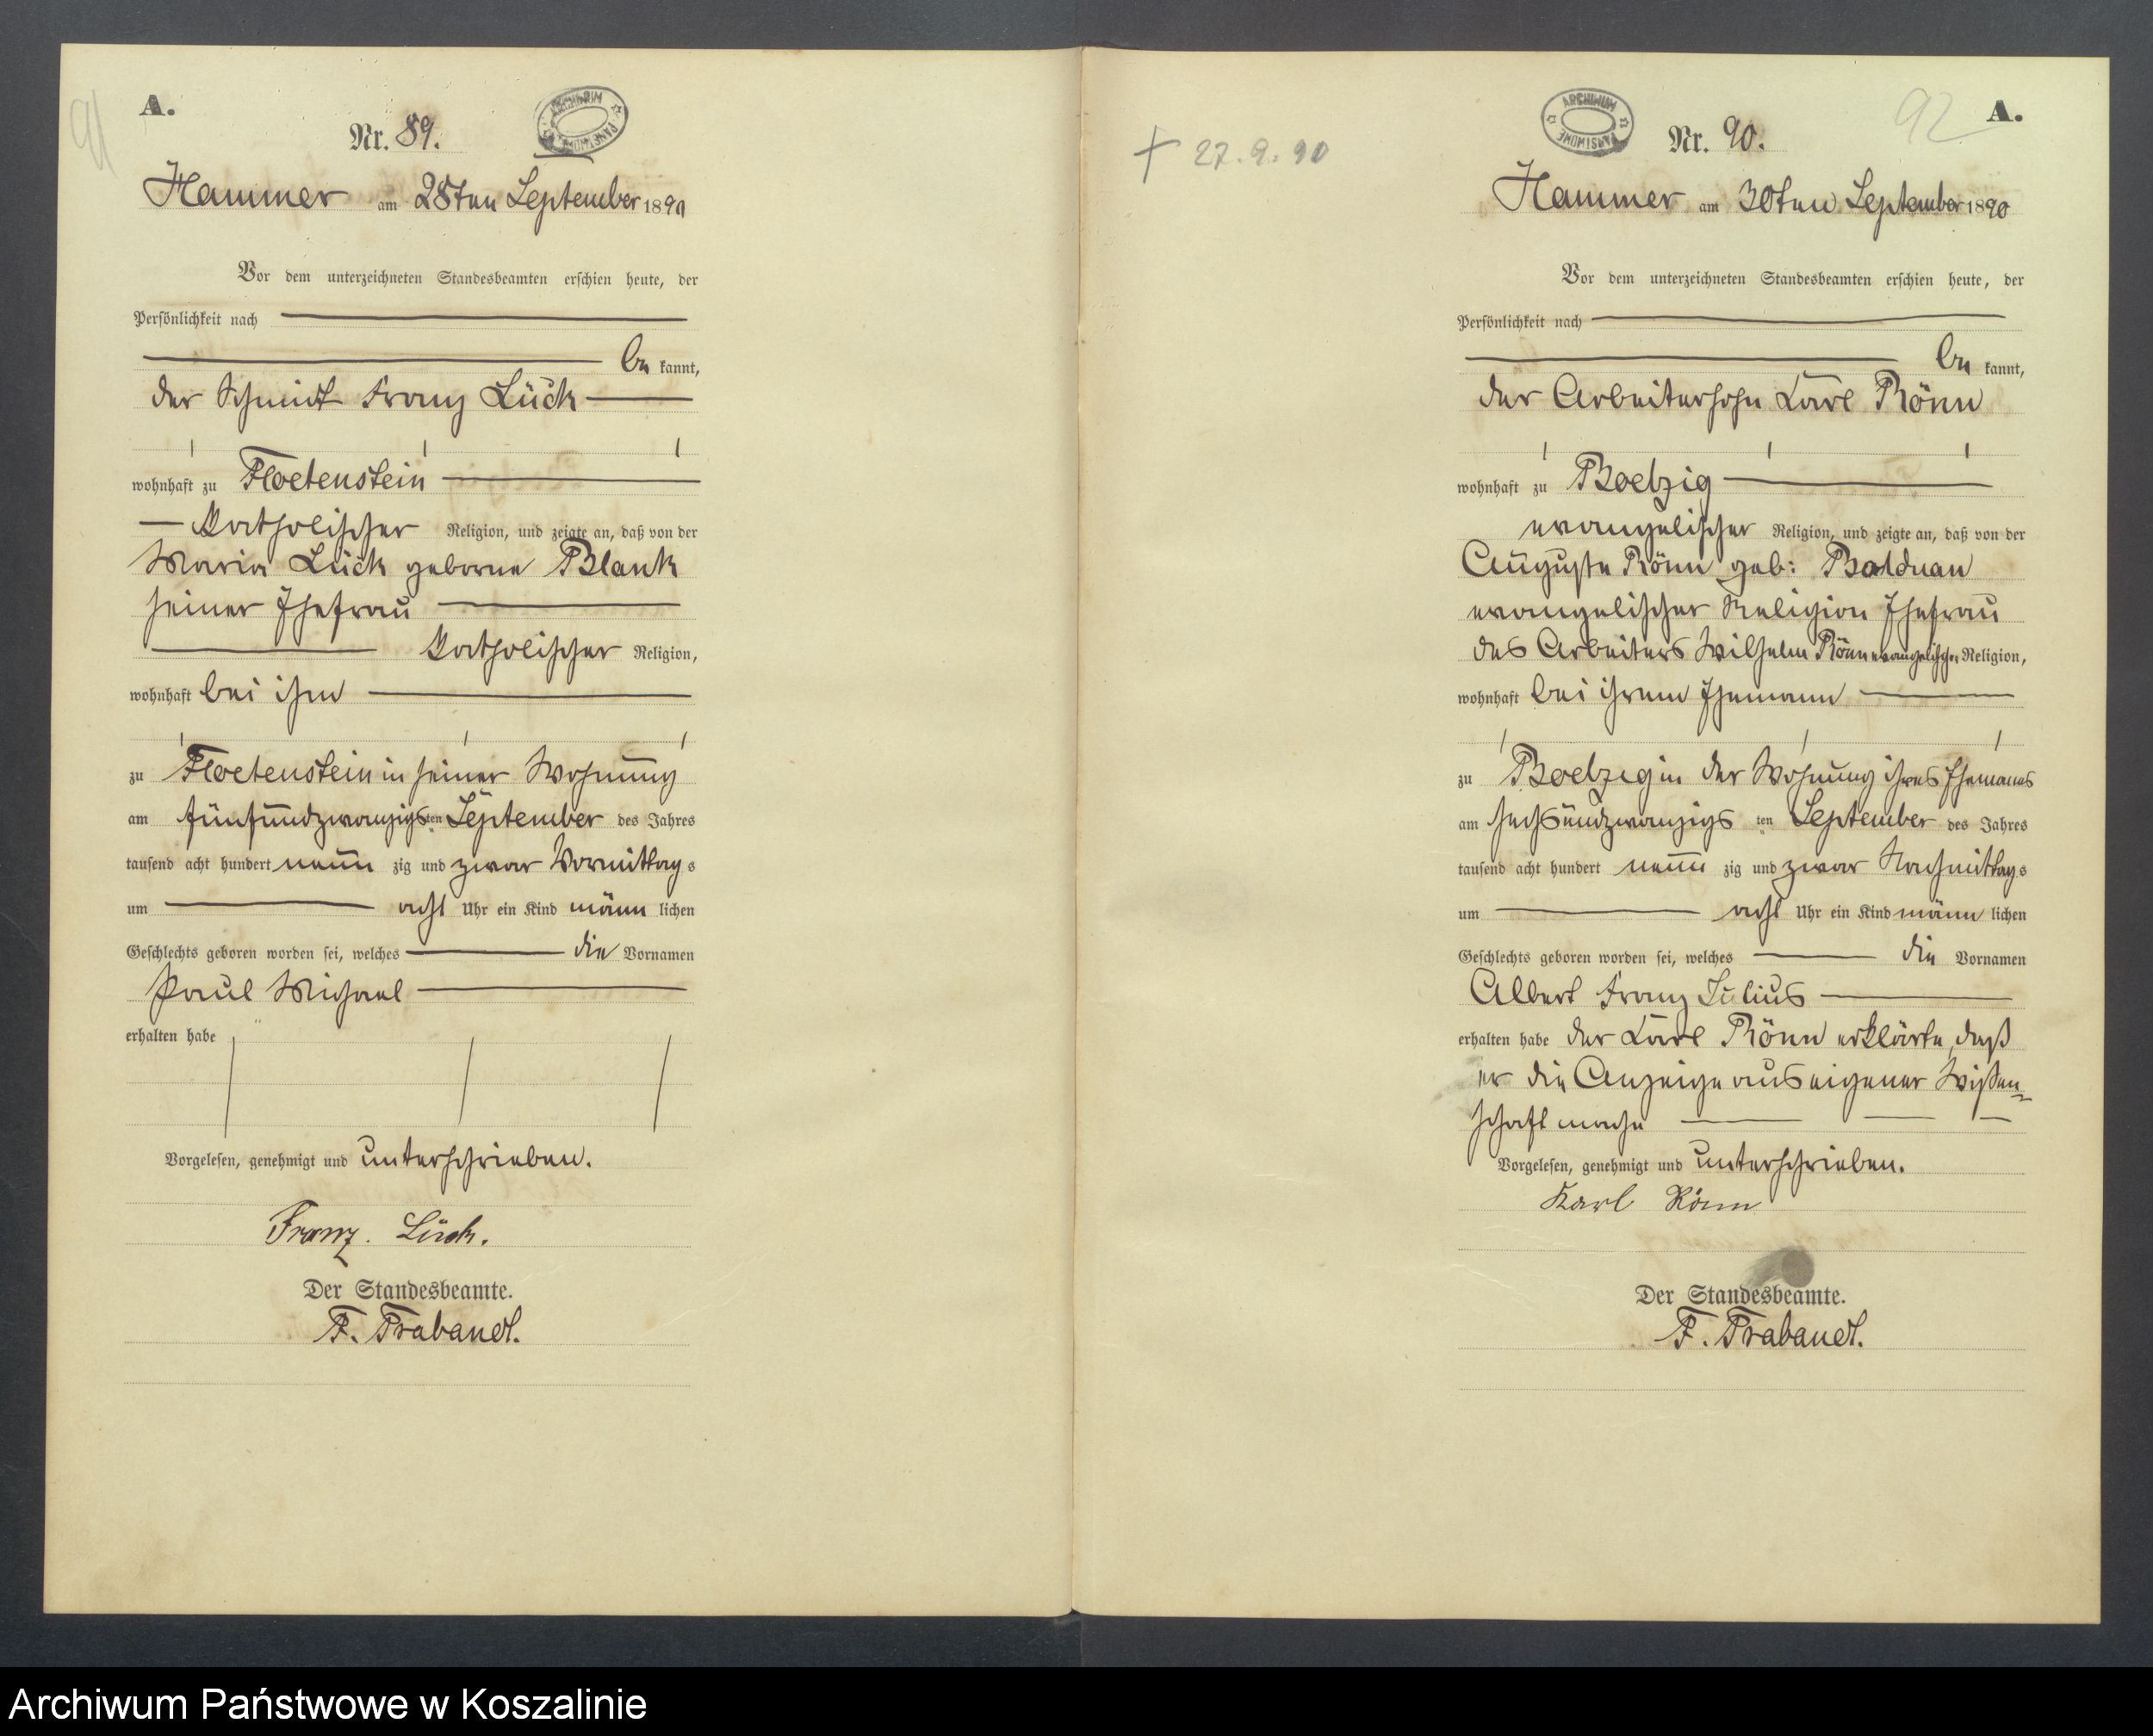 91
A.
Nr. 89.
Hammer am 28ten September 1890
Vor dem unterzeichneten Standesbeamten erschien heute, der
Persönlichkeit nach
be kannt,
der Schmidt Franz Lück
wohnhaft zu Floetenstein
katholischer Religion, und zeigte an, daß von der
Maria Lück geborne Blank
seiner Ehefrau
katholischer Religion,
wohnhaft bei ihm
zu Floetenstein in seiner Wohnung
am fünfundzwanzigsten September des Jahres
tausend acht hundert neun zig und zwar Vormittags
um acht Uhr ein Kind männ lichen
Geschlechts geboren worden sei, welches die Vornamen
Paul Michael
erhalten habe
Vorgelesen, genehmigt und unterschrieben.
Franz. Lück.
Der Standesbeamte.
F. Trabandt.
+ 27.9.90
ARCHIWUM PAŃSTWOWE
92
A.
Nr. 90.
Hammer am 30ten September 1890
Vor dem unterzeichneten Standesbeamten erschien heute, der
Persönlichkeit nach
be kannt,
der Arbeitersohn Karl Rönn
wohnhaft zu Boelzig
evangelischer Religion, und zeigte an, daß von der
Auguste Rönn geb: Balduan
evangelischer Religion Ehefrau
des Arbeiters Wilhelm Rönn evangelischer Religion,
wohnhaft bei ihrem Ehemann
zu Boelzig in der Wohnung ihres Ehemanns
am sechsundzwanzigs ten September des Jahres
tausend acht hundert neun zig und zwar Nachmittags
um acht Uhr ein Kind männ lichen
Geschlechts geboren worden sei, welches die Vornamen
Albert Franz Julius
erhalten habe der Karl Rönn erklärte, daß
er die Anzeige aus eigener Wißen=
schaft mache
Vorgelesen, genehmigt und unterschrieben.
Karl Rönn
Der Standesbeamte.
F. Trabandt.
Archiwum Państwowe w Koszalinie